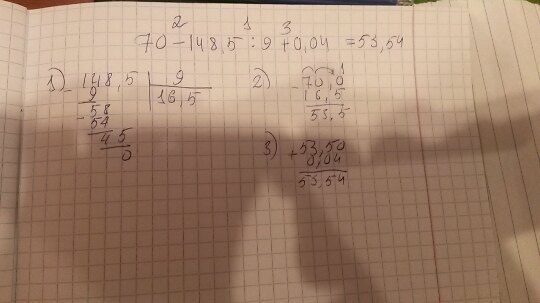 2 1 3
70 - 148,5 : 9 + 0,04 = 53,54
1) - 148,5 | 9
9 | 16,5
- 58
54
45
0
2) - 70,0
16,5
53,5
3) + 53,50
0,04
53,54